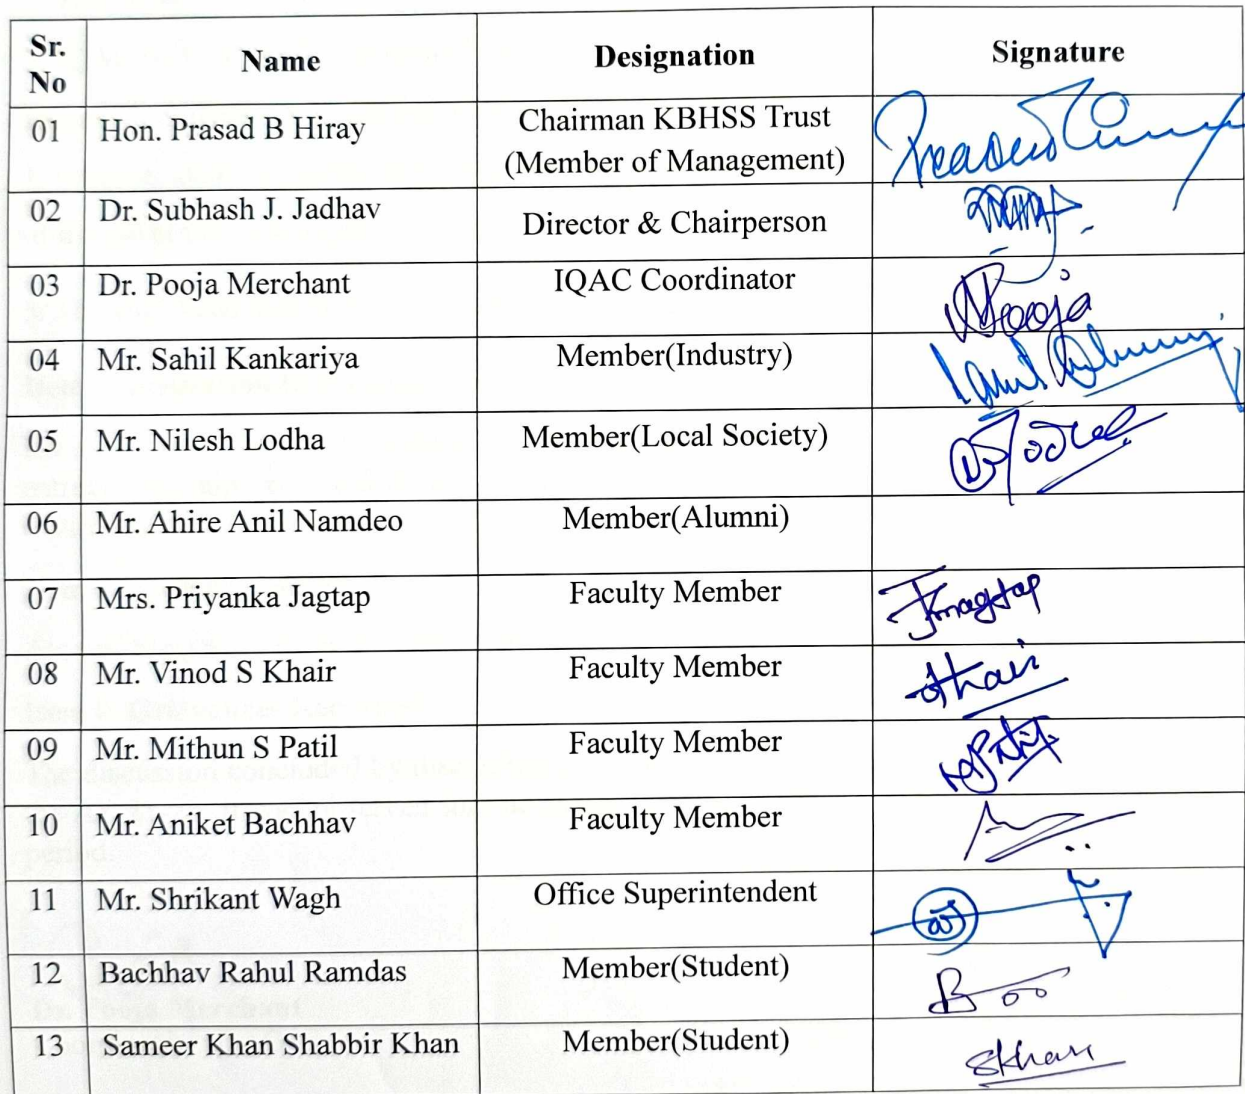 Sr. No Name Designation Signature
01 Hon. Prasad B Hiray Chairman KBHSS Trust (Member of Management)
02 Dr. Subhash J. Jadhav Director & Chairperson
03 Dr. Pooja Merchant IQAC Coordinator Pooja
04 Mr. Sahil Kankariya Member(Industry)
05 Mr. Nilesh Lodha Member(Local Society)
06 Mr. Ahire Anil Namdeo Member(Alumni)
07 Mrs. Priyanka Jagtap Faculty Member
08 Mr. Vinod S Khair Faculty Member
09 Mr. Mithun S Patil Faculty Member
10 Mr. Aniket Bachhav Faculty Member
11 Mr. Shrikant Wagh Office Superintendent
12 Bachhav Rahul Ramdas Member(Student)
13 Sameer Khan Shabbir Khan Member(Student) Skhan